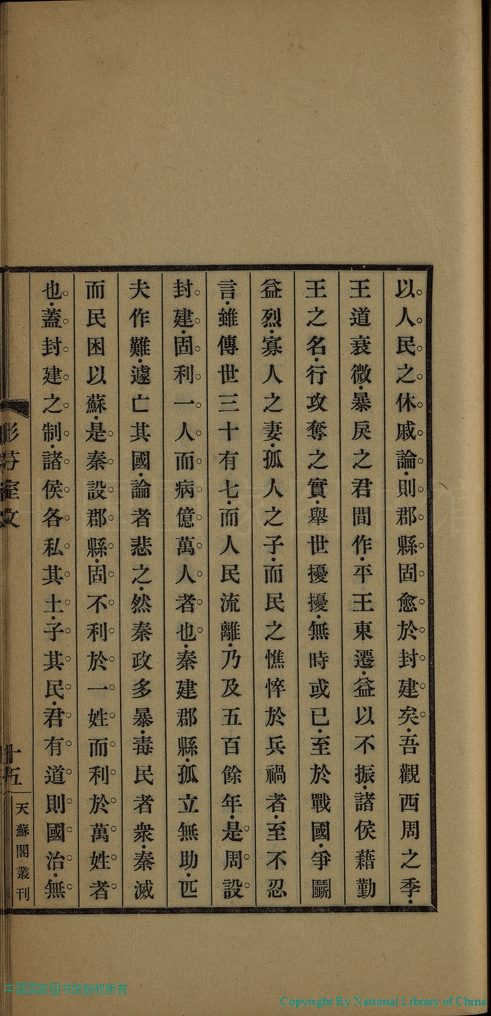 以人民之休戚論則郡縣固愈於封建矣吾觀西周之季
王道衰微暴戾之君間作平王東遷益以不振諸侯藉勤
王之名行攻奪之實舉世擾擾無時或已至於戰國爭鬭
益烈寡人之妻孤人之子而民之憔悴於兵禍者至不忍
言雖傳世三十有七而人民流離乃及五百餘年是周設
封建固利一人而病億萬人者也秦建郡縣孤立無助匹
夫作難遽亡其國論者悲之然秦政多暴毒民者衆秦滅
而民困以蘇是秦設郡縣固不利於一姓而利於萬姓者
也蓋封建之制諸侯各私其土子其民君有道則國治無
芬室文
十五
天蘇閣叢刊
Copyright By National Library of China